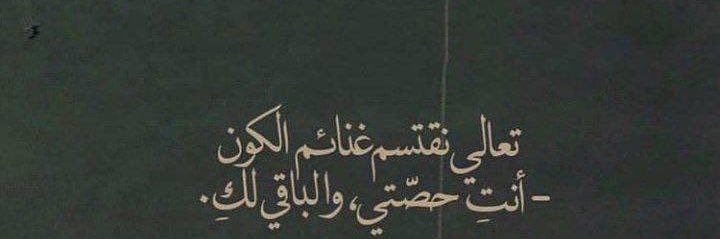 تعالي نقتسم غنائم الكون
- أنتِ حصّتي، والباقي لكِ.